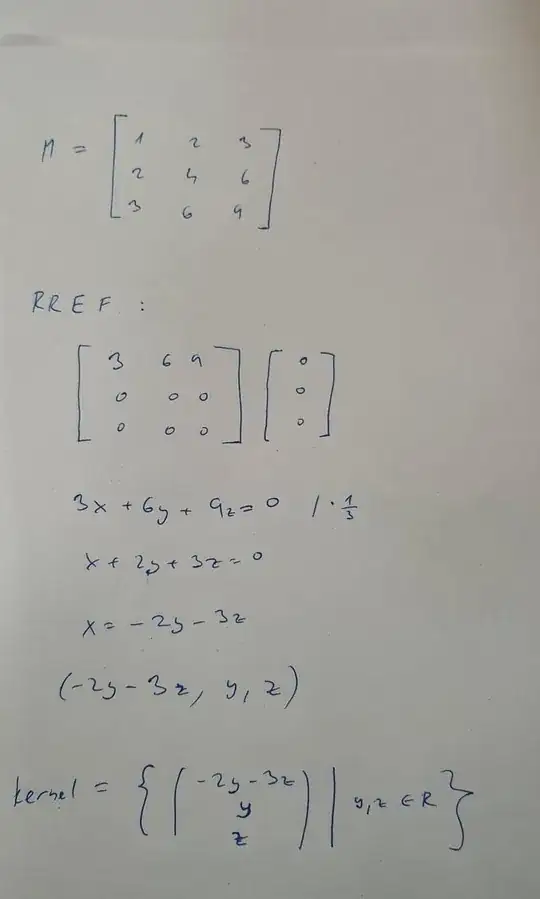 M = [ 1 2 3
2 4 6
3 6 9 ]
RREF :
[ 3 6 9 ] [ 0 ]
0 0 0 0
0 0 0 0
3x + 6y + 9z = 0 / · 1/3
x + 2y + 3z = 0
x = - 2y - 3z
(-2y - 3z, y, z)
kernel = { ( -2y - 3z
y
z ) | y, z ∈ R }